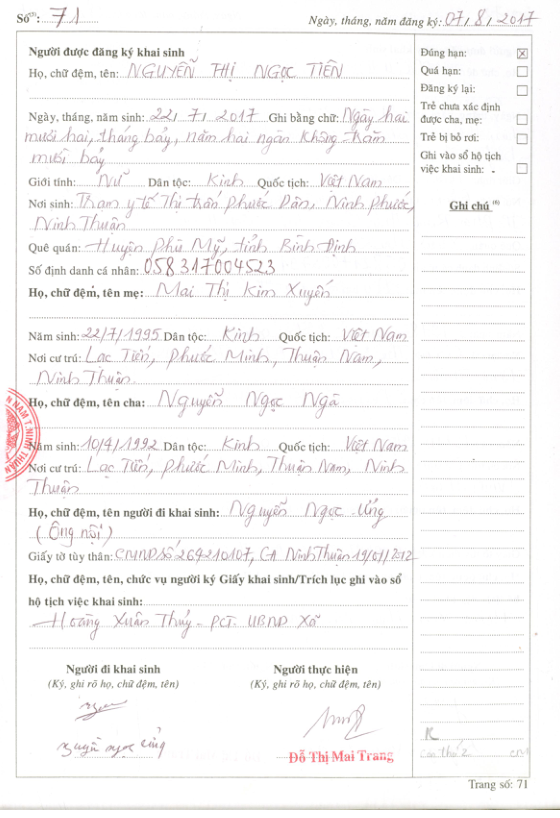 Số⁽⁵⁾: 71
Ngày, tháng, năm đăng ký: 07/8/2017
Người được đăng ký khai sinh
Họ, chữ đệm, tên: NGUYỄN THỊ NGỌC TIÊN
Ngày, tháng, năm sinh: 22/7/2017 Ghi bằng chữ: Ngày hai
mươi hai, tháng bảy, năm hai ngàn không trăm
mười bảy
Giới tính: Nữ Dân tộc: Kinh Quốc tịch: Việt Nam
Nơi sinh: Trạm y tế Thị trấn Phước Dân, Ninh Phước,
Ninh Thuận
Quê quán: Huyện Phù Mỹ, tỉnh Bình Định
Số định danh cá nhân: 058317004523
Họ, chữ đệm, tên mẹ: Mai Thị Kim Xuyến
Năm sinh: 22/7/1995 Dân tộc: Kinh Quốc tịch: Việt Nam
Nơi cư trú: Lạc Tiến, Phước Minh, Thuận Nam,
Ninh Thuận
Họ, chữ đệm, tên cha: Nguyễn Ngọc Ngã
Năm sinh: 10/4/1992 Dân tộc: Kinh Quốc tịch: Việt Nam
Nơi cư trú: Lạc Tiến, Phước Minh, Thuận Nam, Ninh
Thuận
Họ, chữ đệm, tên người đi khai sinh: Nguyễn Ngọc Ứng
(Ông nội)
Giấy tờ tùy thân: CMND số 264210107, CA Ninh Thuận 19/01/2012
Họ, chữ đệm, tên, chức vụ người ký Giấy khai sinh/Trích lục ghi vào sổ
hộ tịch việc khai sinh:
Hoàng Xuân Thủy - PCT. UBND Xã
Người đi khai sinh
(Ký, ghi rõ họ, chữ đệm, tên)
Nguyễn Ngọc Ứng
Người thực hiện
(Ký, ghi rõ họ, chữ đệm, tên)
Đỗ Thị Mai Trang
Đúng hạn: ☒
Quá hạn: ☐
Đăng ký lại: ☐
Trẻ chưa xác định
được cha, mẹ: ☐
Trẻ bị bỏ rơi: ☐
Ghi vào sổ hộ tịch
việc khai sinh: ☐
Ghi chú ⁽⁶⁾
K
con thứ 2
Trang số: 71